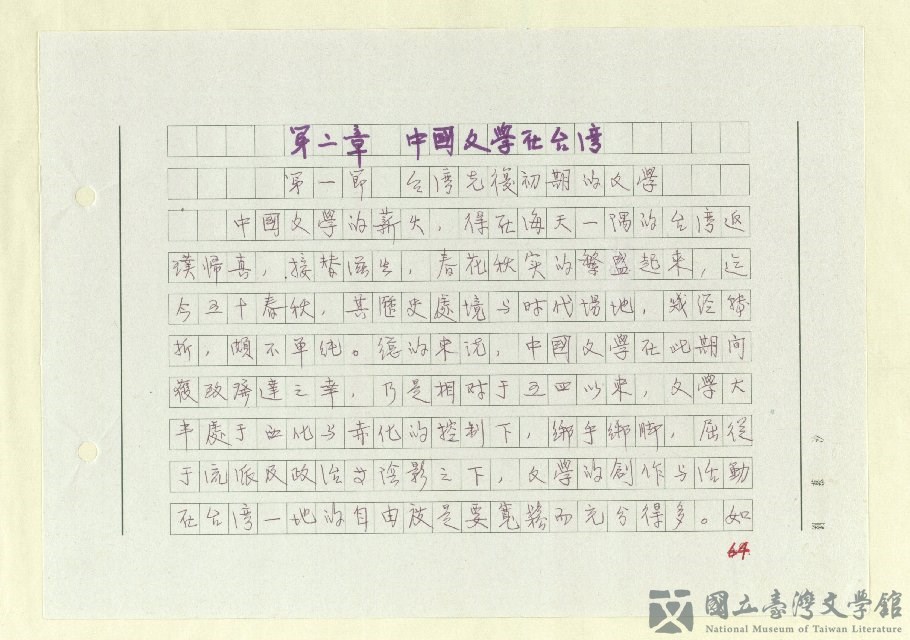 第二章 中國文學在台湾
第一節 台湾先後初期的文學
中國文學的薪火，得在海天一隅的台湾返
璞歸真，接替滋生，春花秋实的繁盛起來，迄
今五十春秋，其歷史處境与时代場地，幾经转
折，頗不单纯。總的來说，中國文學在此期间
之幸，乃是相对于五四以來，文學大
半處于西化与赤化的控制下，綁手綁脚，屈從
于流派及政治文陰影之下，文學的創作与活動
在台湾一地的自由被是要寬鬆而充分得多。如
64
國立臺灣文學館
National Museum of Taiwan Literature